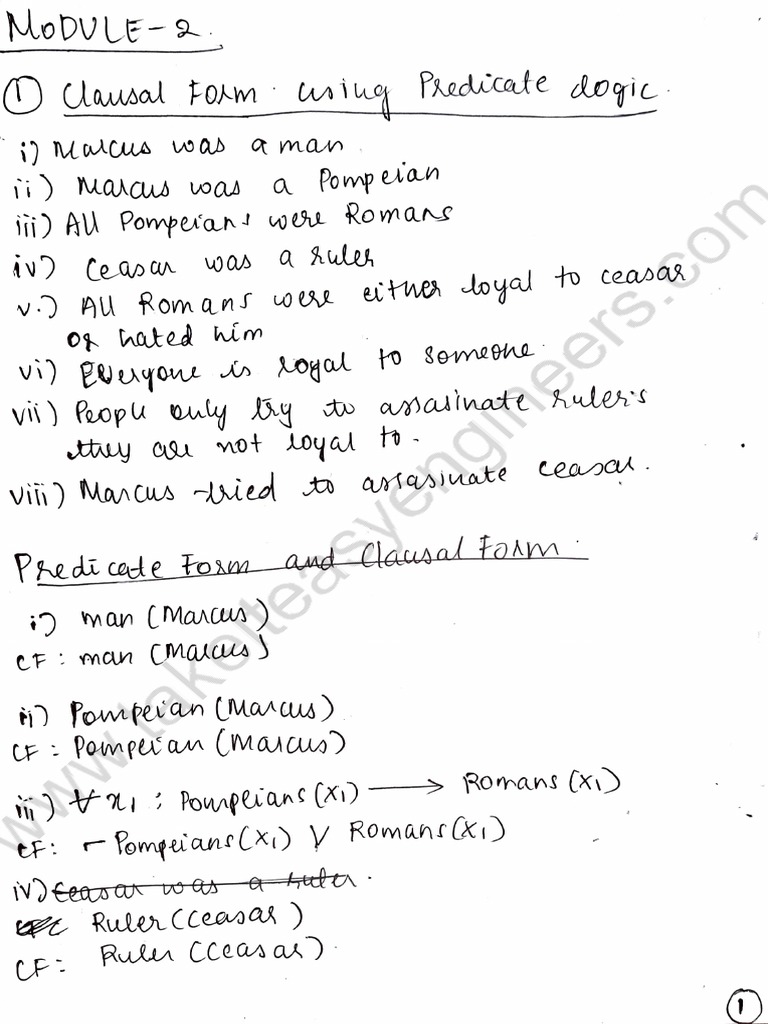 MODULE-2.
① Clausal Form using Predicate Logic.
i) Marcus was a man.
ii) Marcus was a Pompeian
iii) All Pompeians were Romans
iv) Ceasar was a ruler
v.) All Romans were either loyal to ceasar
or hated him
vi) Everyone is loyal to someone.
vii) People only try to assasinate ruler's
they are not loyal to.
viii) Marcus tried to assasinate ceasar.
Predicate Form and Clausal Form.
i) man (Marcus)
CF: man (Marcus)
ii) Pompeian (Marcus)
CF: Pompeian (Marcus)
iii) ∀ x1 : Pompeians (x1) ⟶ Romans (x1)
CF: ¬ Pompeians (x1) V Romans (x1)
iv) Ceasar was a ruler.
Ruler (Ceasar)
CF: Ruler (Ceasar).
1
www.takeiteasyengineers.com